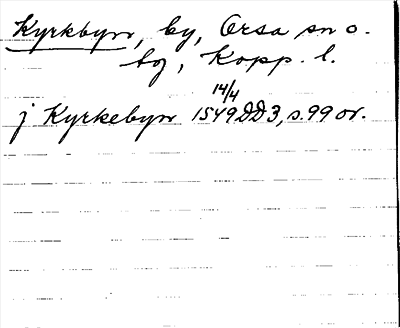 Kyrkbyn, by, Orsa sn o.
tg, Kopp. l.
j Kyrkebynn 14/4 1549 DD3, s. 99 or.